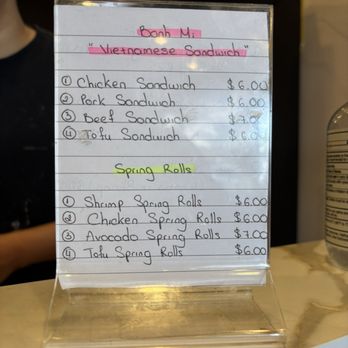 Banh Mi
"Vietnamese Sandwich"
① Chicken Sandwich $6.00
② Pork Sandwich $6.00
③ Beef Sandwich $7.0
④ Tofu Sandwich $6.0
Spring Rolls
① Shrimp Spring Rolls $6.00
② Chicken Spring Rolls $6.00
③ Avocado Spring Rolls $7.00
④ Tofu Spring Rolls $6.00